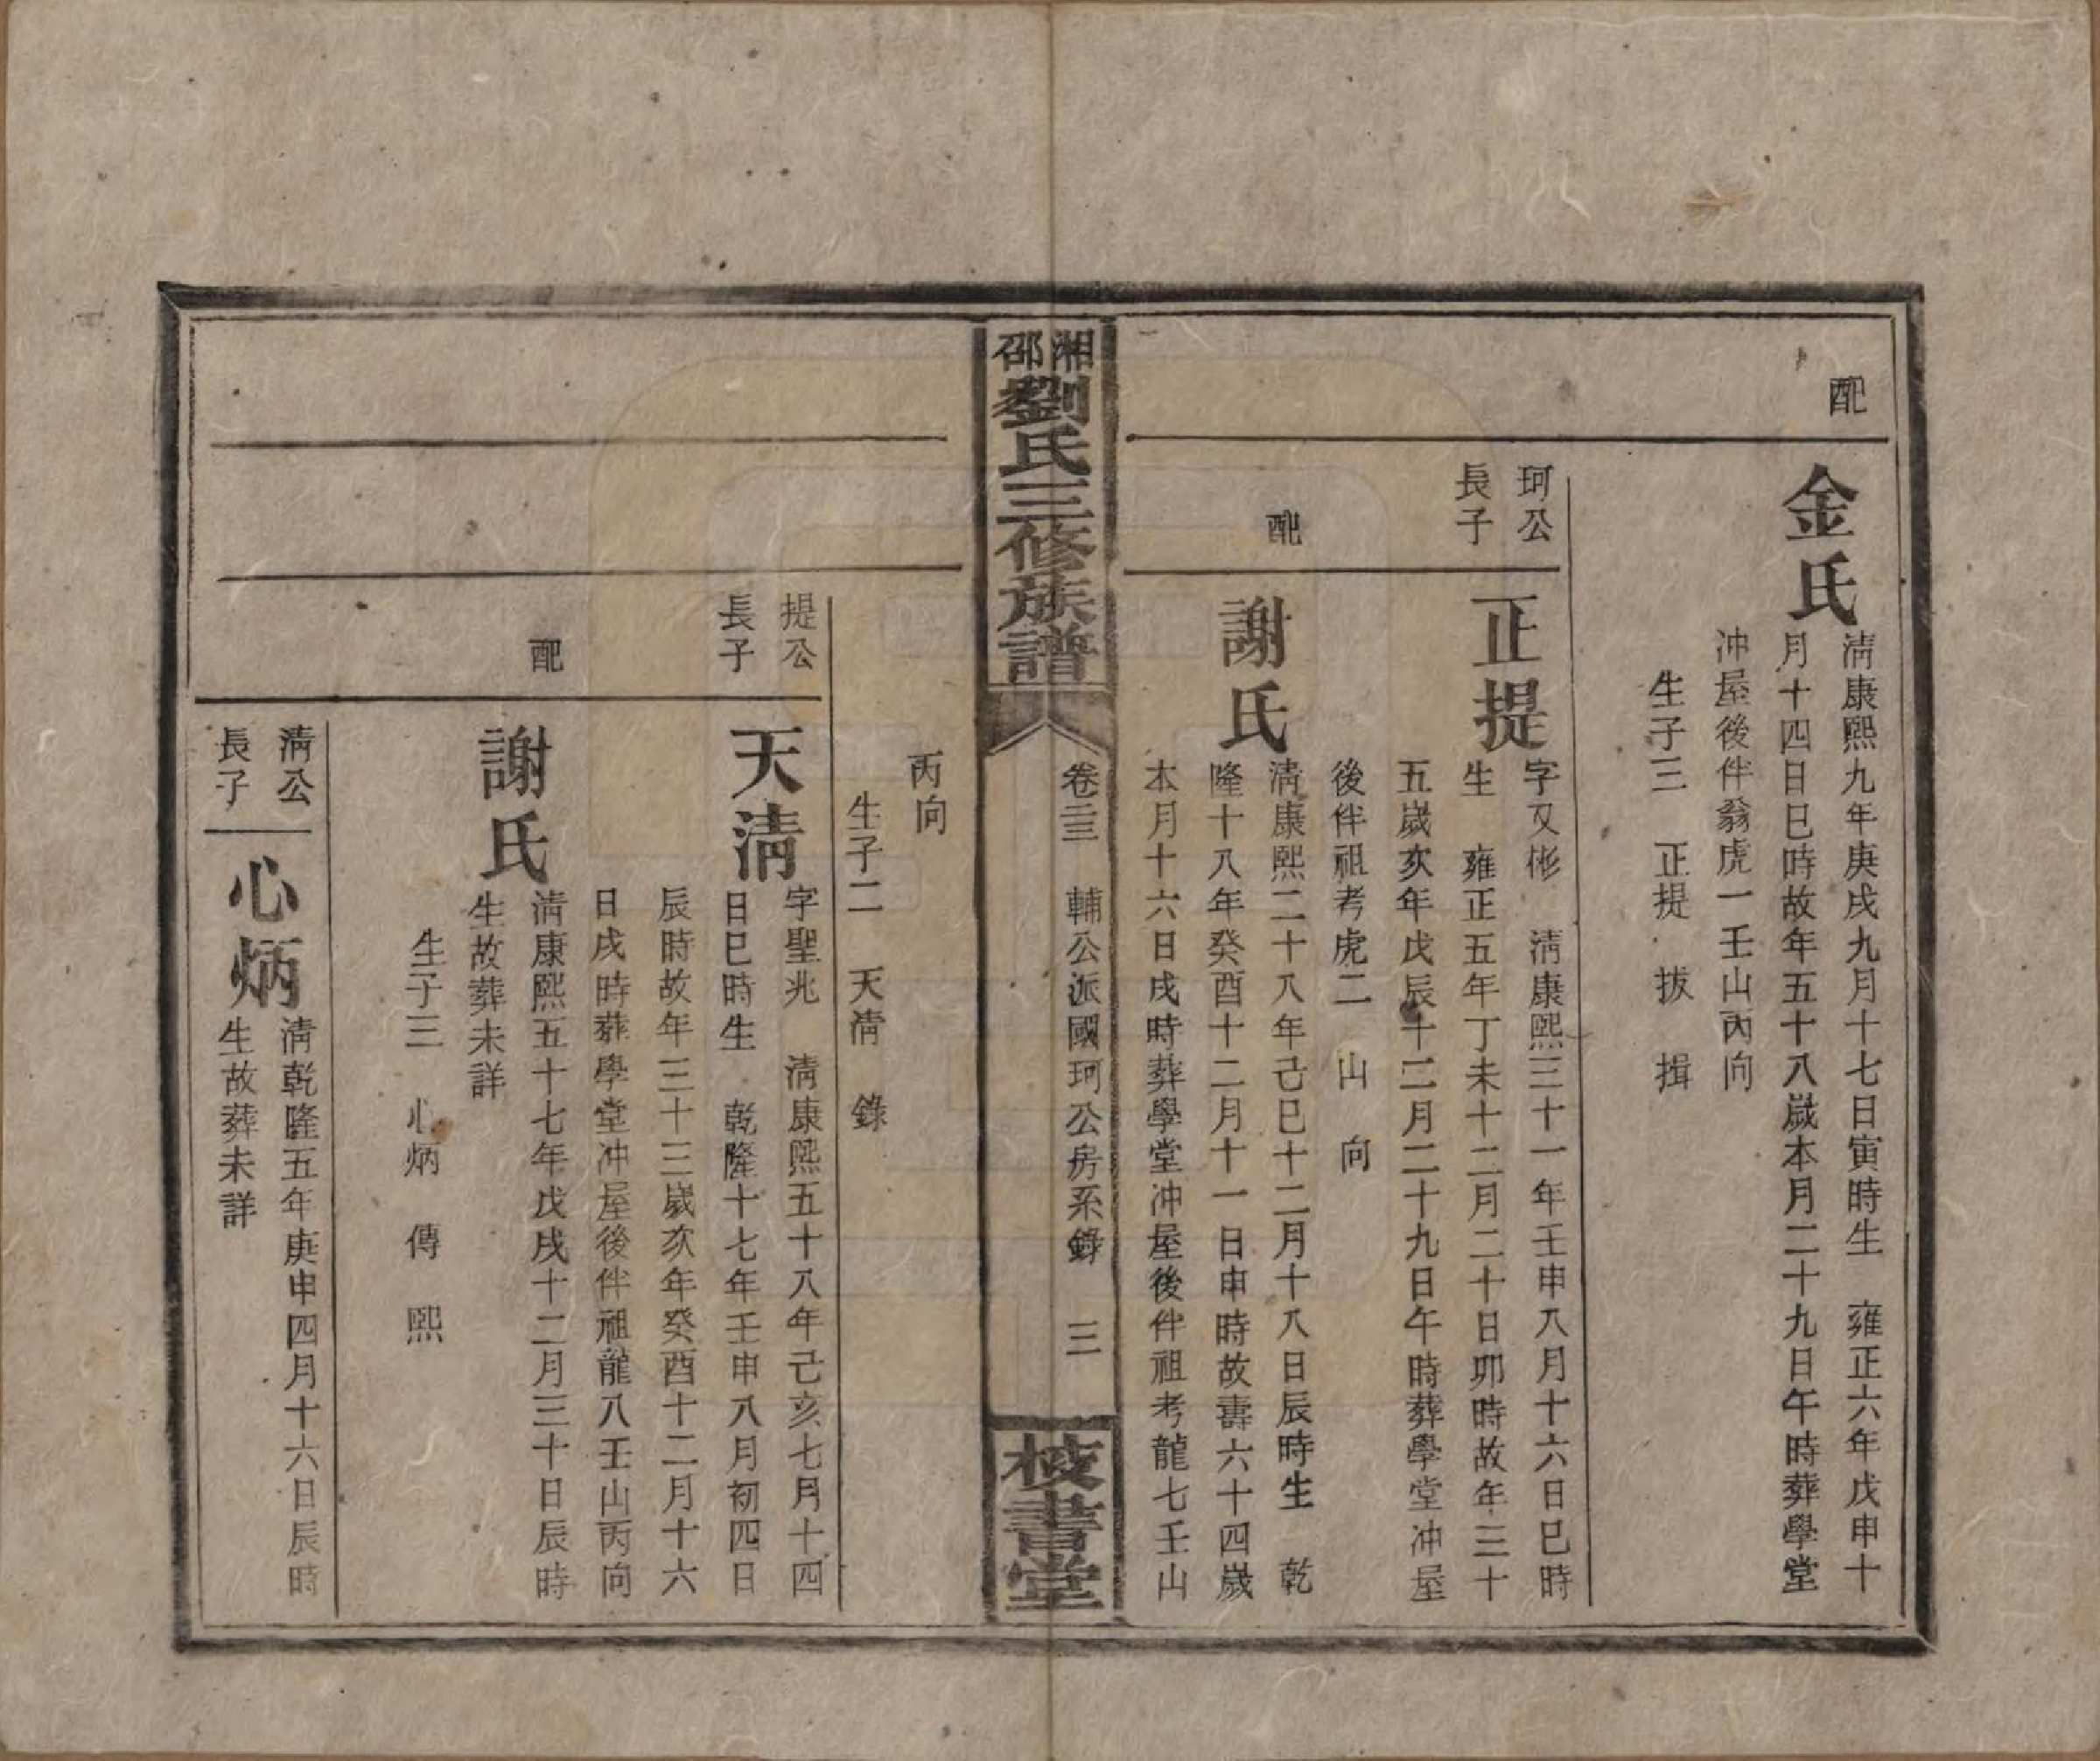 配
金氏
清康熙九年庚戌九月十七日寅時生　雍正六年戊申十
月十四日巳時故年五十八歲本月二十九日午時葬學堂
冲屋後伴翁虎一壬山丙向
生子三　正提　拔　揖
珂公
長子
正提
字又彬　清康熙三十一年壬申八月十六日巳時
生　雍正五年丁未十二月二十日卯時故年三十
五歲亥年戊辰十二月二十九日午時葬學堂冲屋
後伴祖考虎二　山　向
配
謝氏
清康熙二十八年己巳十二月十八日辰時生　乾
隆十八年癸酉十二月十一日申時故壽六十四歲
本月十六日戌時葬學堂冲屋後伴祖考龍七壬山
湘邵劉氏三修族譜
卷二三　輔公派國珂公房系錄　三
校書堂
丙向
生子二　天清　錄
提公
長子
天清
字聖兆　清康熙五十八年己亥七月十四
日巳時生　乾隆十七年壬申八月初四日
辰時故年三十三歲次年癸酉十二月十六
日戌時葬學堂冲屋後伴祖龍八壬山丙向
配
謝氏
清康熙五十七年戊戌十二月三十日辰時
生故葬未詳
生子三　心炳　傳　熙
清公
長子
心炳
清乾隆五年庚申四月十六日辰時
生故葬未詳